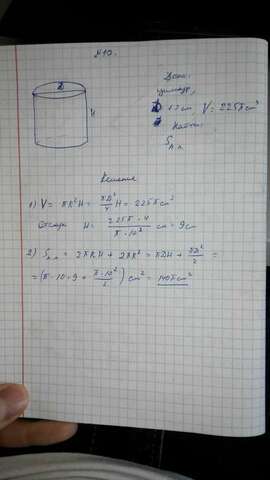 №10.
D
H
Дано:
цилиндр,
V = 225π см³
Найти:
S п.п.
Решение
1) V = πR²H = πD²/4 H = 225π см³
Отсюда H = 225π · 4 / π · 10² см = 9 см
2) S п.п = 2πRH + 2πR² = πDH + πD²/2 =
= (π · 10 · 9 + π · 10²/2) см² = 140π см²